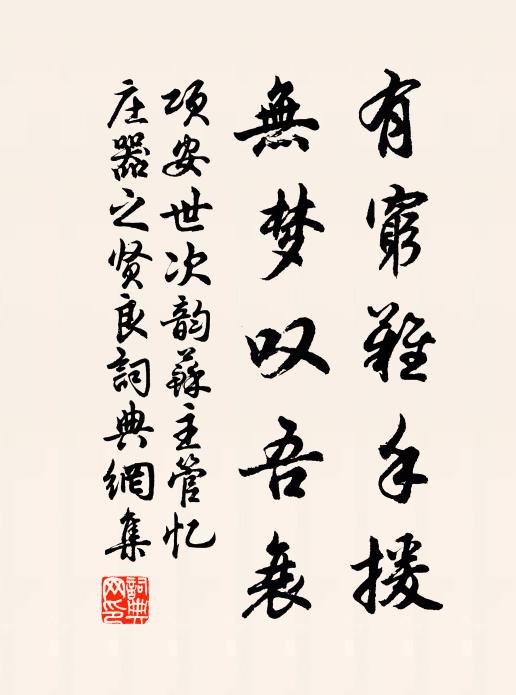 有窮難手援
無梦叹吾衰
项安世次韵蘇主管忆
庄器之贤良詞典網集